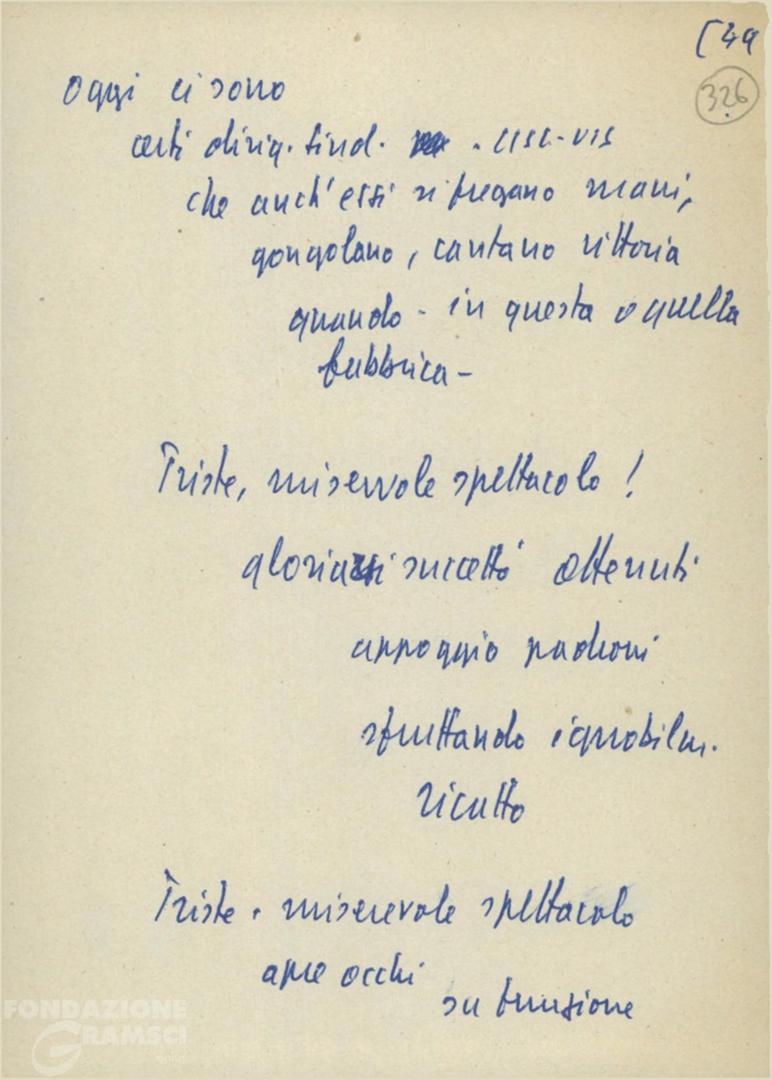 [49
326
oggi ci sono
certi dirig. sind. . CISL-UIL
che anch'essi si fregano mani,
gongolano, cantano vittoria
quando - in questa o quella
fabbrica -
Triste, miserevole spettacolo!
gloriarsi successi ottenuti
appoggio padroni
sfruttando ignobilm.
ricatto
Triste. miserevole spettacolo
apre occhi
su funzione
FONDAZIONE
GRAMSCI